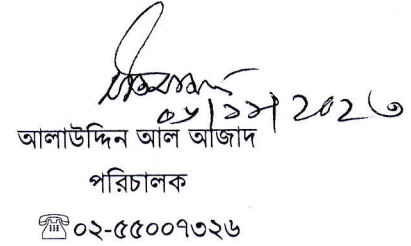 ১১|২০২৩
আলাউদ্দিন আল আজাদ
পরিচালক
☏ ০২-৫৫০০৭৩২৬